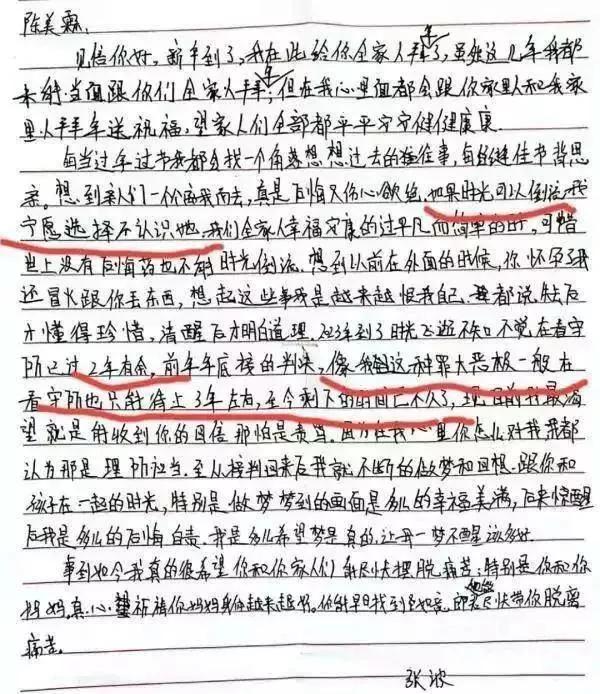 陈美霖:
见信你好，新年到了，我在此给你全家人拜年了，虽然这几年我都
未能当面跟你们全家人拜年，但在我心里面都会跟你家里人和我家
里人拜年送祝福，望家人们全部都平平安安健健康康
每当过年过节我都会找一个角落想想过去的往事，每逢佳节倍思
亲。想到亲人们一个个离我而去，真是后悔又伤心欲绝，如果时光可以倒流我
宁愿选择不认识她，我们全家人幸福安康的过平凡而简单的 可惜
世上没有后悔药也不能时光倒流。想到以前在外面的时候，你怀孕了我
还冒火跟你丢东西，想起这些事我是越来越恨我自己，我都说失去后
才懂得珍惜，清醒后才明白道理，2023年到了时光飞逝不知不觉在看守
所已过2年有余，前年年底接的判决，像我这种罪大恶极一般在
看守所也只能待上3年左右，至今剩下的时间已不久了，现目前我最渴
望就是能收到你的回信那怕是责骂。因为在我心里你怎么对我我都
认为那是理所应当，至从接判回来后我就不断的做梦和回想，跟你和
孩子在一起的时光，特别是做梦梦到的画面是多么的幸福美满，后来惊醒
后我是多么的后悔自责。我是多么希望梦是真的，让每一梦不醒该多好
事到如今我真的很希望你和你家人们能尽快摆脱痛苦，特别是你和你
妈妈，真心 祈祷你妈妈身体越来越好。你能早日找到 尽快带你脱离
痛苦。
张波